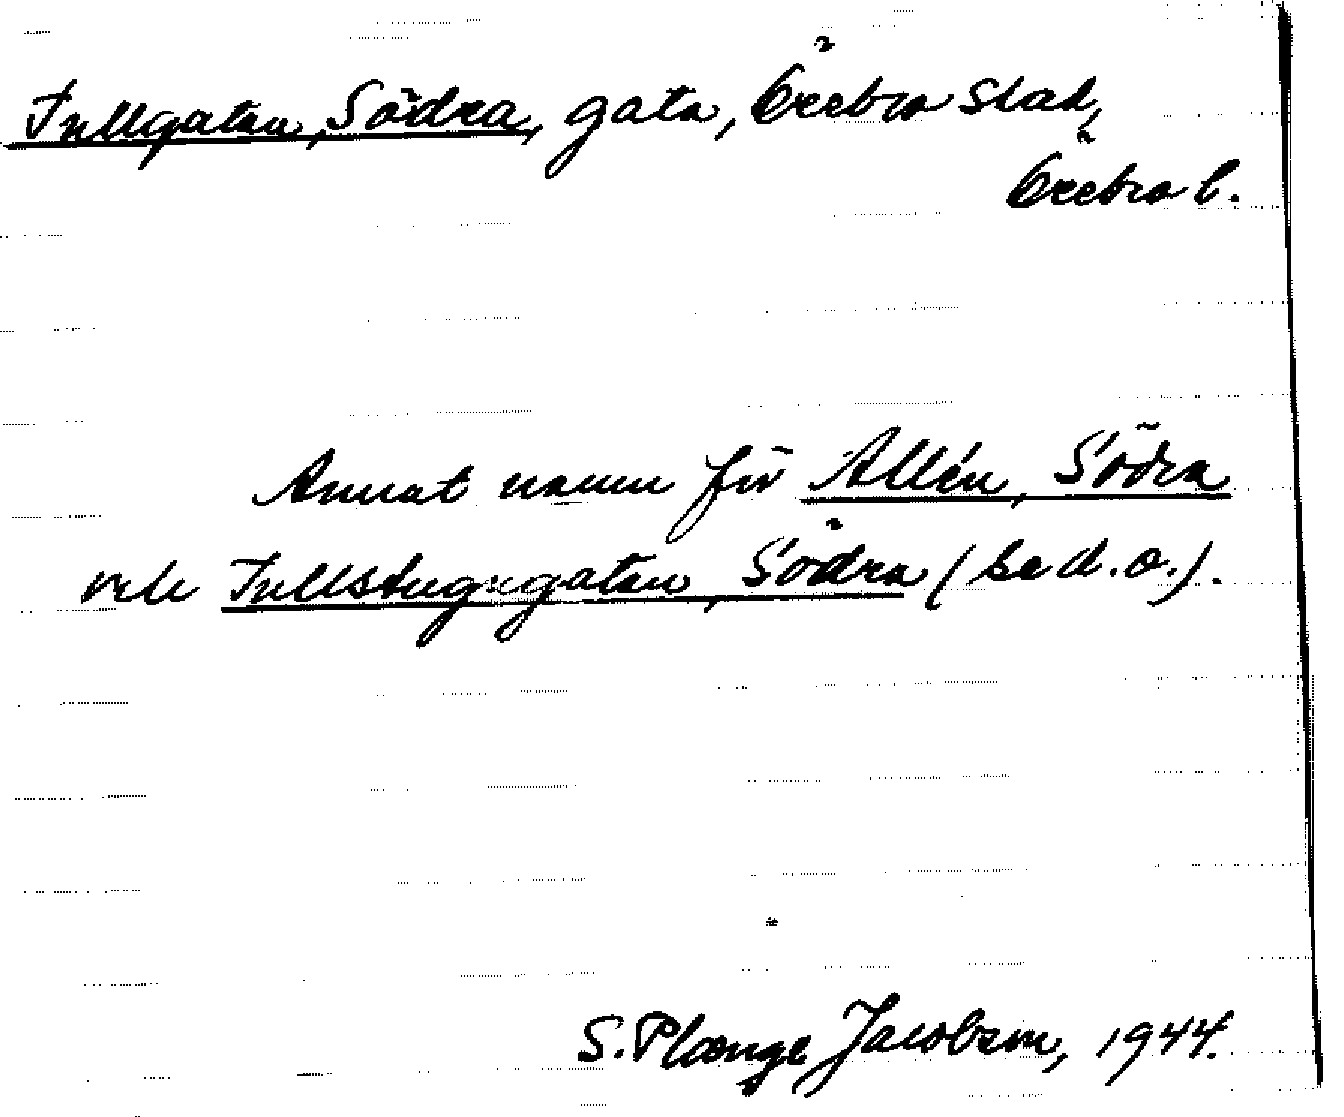 Tullgatan, Södra, gata, Örebro stad,
Örebro l.
Annat namn för Allén, Södra
och Tullstugugatan, Södra (se d. o.).
S. Plænge Jacobson, 1944.